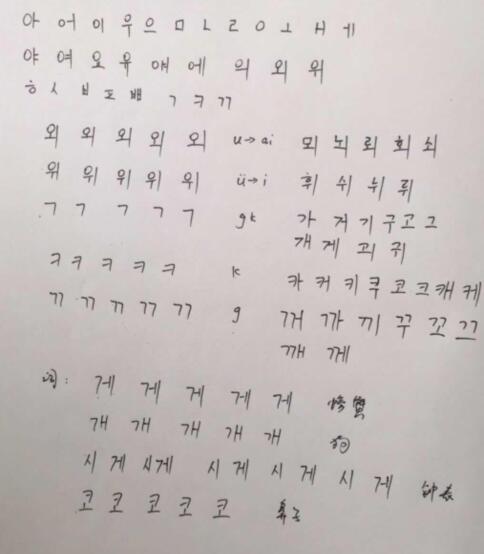 아 어 이 우 으 ㅁ ㄴ ㄹ ㅇ ㅗ ㅐ ㅔ
야 여 오 유 얘 에 의 외 위
ㅎ ㅅ ㅂ ㅍ ㅃ ㄱ ㅋ ㄲ
외 외 외 외 외 u→ai 뫼 뇌 뢰 회 쇠
위 위 위 위 위 ü→i 휘 쉬 뉘 뤼
ㄱ ㄱ ㄱ ㄱ ㄱ gk 가 거 기 구 고 그
개 게 괴 귀
ㅋ ㅋ ㅋ ㅋ ㅋ k 카 커 키 쿠 코 크 캐 케
ㄲ ㄲ ㄲ ㄲ ㄲ g 꺼 까 끼 꾸 꼬 끄
깨 께
词: 게 게 게 게 게 螃蟹
개 개 개 개 개 狗
시게 시게 시게 시게 시게 钟表
코 코 코 코 코 鼻子